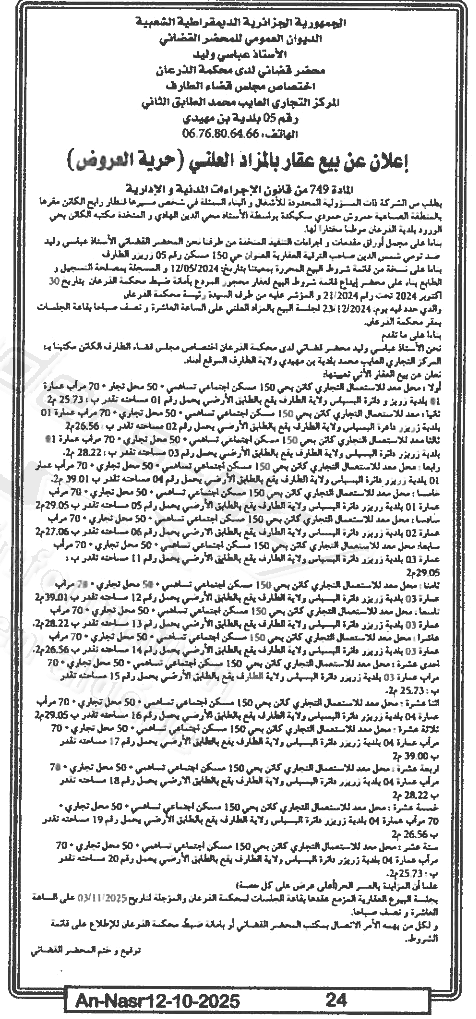 الجمهورية الجزائرية الديمقراطية الشعبية
الديوان العمومي للمحضر القضائي
الأستاذ عباسي وليد
محضر قضائي لدى محكمة الذرعان
اختصاص مجلس قضاء الطارف
المركز التجاري العايب محمد الطابق الثاني
رقم 05 بلدية بن مهيدي
الهاتف: 06.76.80.64.66
إعلان عن بيع عقار بالمزاد العلني (حرية العروض)
المادة 749 من قانون الإجراءات المدنية و الإدارية
بطلب من الشركة ذات المسؤولية المحدودة للأشغال و البناء الممثلة في شخص مسيرها لطار رابح الكائن مقرها
بالمنطقة الصناعية حمروش حمودي سكيكدة بواسطة الأستاذ محي الدين الهادي و المتخذة مكتبه الكائن بحي
الورود بلدية الذرعان موطنا مختارا لها.
بناءا على مجمل أوراق مقدمات و إجراءات التنفيذ المتخذة من طرفنا نحن المحضر القضائي الأستاذ عباسي وليد
ضد تومي شمس الدين صاحب الترقية العقارية العنوان حي 150 مسكن رقم 05 زريزر الطارف
بناءا على نسخة من قائمة شروط البيع المحررة بمعيتنا بتاريخ: 12/05/2024 و المسجلة بمصلحة التسجيل و
الطابع بناء على محضر إيداع قائمة شروط البيع لعقار محجوز المودع بأمانة ضبط محكمة الذرعان بتاريخ 30
أكتوبر 2024 تحت رقم 21/2024 و المؤشر عليه من طرف السيدة رئيسة محكمة الذرعان
والذي حدد فيه يوم: 23/12/2024 لجلسة البيع بالمزاد العلني على الساعة العاشرة و نصف صباحا بقاعة الجلسات
بمقر محكمة الذرعان.
بناءا على ما تقدم
نحن الأستاذ عباسي وليد محضر قضائي لدى محكمة الذرعان اختصاص مجلس قضاء الطارف الكائن مكتبنا بـ:
المركز التجاري العايب محمد بلدية بن مهيدي ولاية الطارف الموقع أدناه.
نعلن عن بيع العقار الآتي تعيينها:
أولا: محل معد للاستعمال التجاري كائن بحي 150 مسكن اجتماعي تساهمي + 50 محل تجاري + 70 مرآب عمارة
01 بلدية زريزر دائرة البسباس ولاية الطارف يقع بالطابق الأرضي يحمل رقم 01 مساحته تقدر ب: 25.73 م2
ثانيا: معد للاستعمال التجاري كائن بحي 150 مسكن اجتماعي تساهمي + 50 محل تجاري + 70 مرآب عمارة 01
بلدية زريزر دائرة البسباس ولاية الطارف يقع بالطابق الأرضي يحمل رقم 02 مساحته تقدر ب: 26.56م2
ثالثا معد للاستعمال التجاري كائن بحي 150 مسكن اجتماعي تساهمي + 50 محل تجاري + 70 مرآب عمارة 01
بلدية زريزر دائرة البسباس ولاية الطارف يقع بالطابق الأرضي يحمل رقم 03 مساحته تقدر ب: 28.22 م2
رابعا: محل معد للاستعمال التجاري كائن بحي 150 مسكن اجتماعي تساهمي + 50 محل تجاري + 70 مرآب عمارة
01 بلدية زريزر دائرة البسباس ولاية الطارف يقع بالطابق الأرضي يحمل رقم 04 مساحته تقدر ب 39.01 م2
خامسا: محل معد للاستعمال التجاري كائن بحي 150 مسكن اجتماعي تساهمي + 50 محل تجاري + 70 مرآب
عمارة 01 بلدية زريزر دائرة البسباس ولاية الطارف يقع بالطابق الأرضي يحمل رقم 05 مساحته تقدر ب 29.05م2
سادسا: محل معد للاستعمال التجاري كائن بحي 150 مسكن اجتماعي تساهمي + 50 محل تجاري + 70 مرآب
عمارة 02 بلدية زريزر دائرة البسباس ولاية الطارف يقع بالطابق الارضي يحمل رقم 06 مساحته تقدر ب 27.06م2
سابعا: محل معد للاستعمال التجاري كائن بحي 150 مسكن اجتماعي تساهمي + 50 محل تجاري + 70 مرآب
عمارة 03 بلدية زريزر دائرة البسباس ولاية الطارف يقع بالطابق الأرضي يحمل رقم 11 مساحته تقدر ب:
29.05م2
ثامنا: محل معد للاستعمال التجاري كائن بحي 150 مسكن اجتماعي تساهمي + 50 محل تجاري + 70 مرآب
عمارة 03 بلدية زريزر دائرة البسباس ولاية الطارف يقع بالطابق الأرضي يحمل رقم 12 مساحته تقدر ب 39.01م2
تاسعا: محل معد للاستعمال التجاري كائن بحي 150 مسكن اجتماعي تساهمي + 50 محل تجاري + 70 مرآب
عمارة 03 بلدية زريزر دائرة البسباس ولاية الطارف يقع بالطابق الأرضي يحمل رقم 13 مساحته تقدر ب 28.22م2
عاشرا: محل معد للاستعمال التجاري كائن بحي 150 مسكن اجتماعي تساهمي + 50 محل تجاري + 70 مرآب
عمارة 03 بلدية زريزر دائرة البسباس ولاية الطارف يقع بالطابق الأرضي يحمل رقم 14 مساحته تقدر ب 26.56م2
احدى عشرة: محل معد للاستعمال التجاري كائن بحي 150 مسكن اجتماعي تساهمي + 50 محل تجاري + 70
مرآب عمارة 03 بلدية زريزر دائرة البسباس ولاية الطارف يقع بالطابق الأرضي يحمل رقم 15 مساحته تقدر
ب: 25.73 م2
اثنا عشرة: محل معد للاستعمال التجاري كائن بحي 150 مسكن اجتماعي تساهمي + 50 محل تجاري + 70 مرآب
عمارة 04 بلدية زريزر دائرة البسباس ولاية الطارف يقع بالطابق الأرضي يحمل رقم 16 مساحته تقدر ب 29.05م2
ثلاثة عشرة: محل معد للاستعمال التجاري كائن بحي 150 مسكن اجتماعي تساهمي + 50 محل تجاري + 70
مرآب عمارة 04 بلدية زريزر دائرة البسباس ولاية الطارف يقع بالطابق الأرضي يحمل رقم 17 مساحته تقدر
ب 39.00 م2
اربعة عشرة: محل معد للاستعمال التجاري كائن بحي 150 مسكن اجتماعي تساهمي + 50 محل تجاري + 70
مرآب عمارة 04 بلدية زريزر دائرة البسباس ولاية الطارف يقع بالطابق الأرضي يحمل رقم 18 مساحته تقدر
ب 28.22 م2
خمسة عشرة: محل معد للاستعمال التجاري كائن بحي 150 مسكن اجتماعي تساهمي + 50 محل تجاري +
70 مرآب عمارة 04 بلدية زريزر دائرة البسباس ولاية الطارف يقع بالطابق الأرضي يحمل رقم 19 مساحته تقدر
ب 26.56 م2
ستة عشرة: محل معد للاستعمال التجاري كائن بحي 150 مسكن اجتماعي تساهمي + 50 محل تجاري + 70
مرآب عمارة 04 بلدية زريزر دائرة البسباس ولاية الطارف يقع بالطابق الأرضي يحمل رقم 20 مساحته تقدر
ب: 25.73م2
علما أن المزايدة بالسعر الحر(أعلى عرض على كل حصة)
بجلسة البيوع العقارية المزمع عقدها بقاعة الجلسات لمحكمة الذرعان والمؤجلة لتاريخ 03/11/2025 على الساعة
العاشرة و نصف صباحا.
و لكل من يهمه الأمر الاتصال بمكتب المحضر القضائي أو بأمانة ضبط محكمة الذرعان للإطلاع على قائمة
الشروط.
توقيع و ختم المحضر القضائي
An-Nasr12-10-2025 24